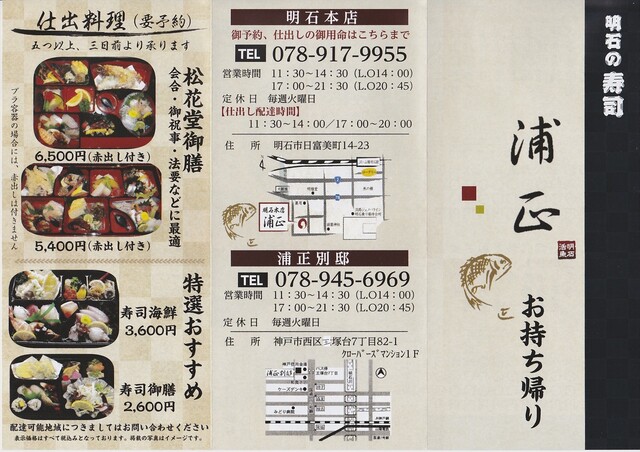 仕出料理(要予約)
五つ以上、三日前より承ります
松花堂御膳
会合・御祝事・法要などに最適
プラ容器の場合には、赤出しは付きません
6,500円(赤出し付き)
5,400円(赤出し付き)
特選おすすめ
寿司海鮮
3,600円
寿司御膳
2,600円
配達可能地域につきましてはお問い合わせください
表示価格はすべて税込みとなっております。掲載の写真はイメージです。
明石本店
御予約、仕出しの御用命はこちらまで
TEL 078-917-9955
営業時間 11:30~14:30 (L.O14:00)
17:00~21:30 (L.O20:45)
定休日 毎週火曜日
【仕出し配達時間】
11:30~14:00/17:00~20:00
住所 明石市日富美町14-23
明石本店
浦正
浦正別邸
TEL 078-945-6969
営業時間 11:30~14:30 (L.O14:00)
17:00~21:30 (L.O20:45)
定休日 毎週火曜日
住所 神戸市西区王塚台7丁目82-1
クローバーズマンション1F
浦正別邸
ケーズデンキ
みどり病院
明石の寿司
浦正
お持ち帰り